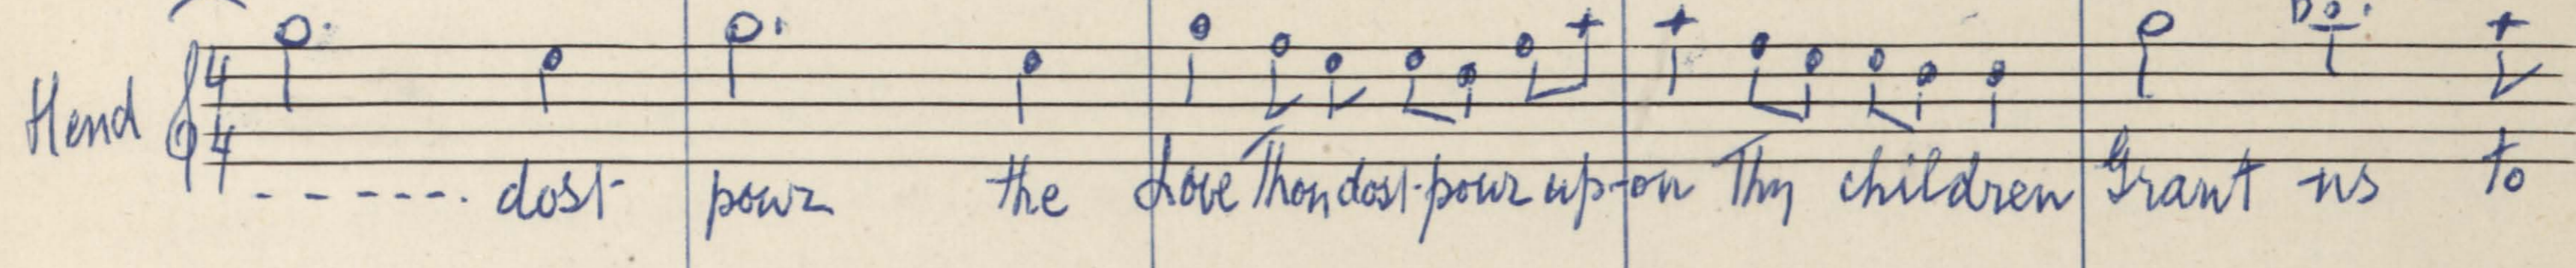 Hend 4 4
- - - - - - dost pour the Love Thou dost pour up-on Thy children Grant us to